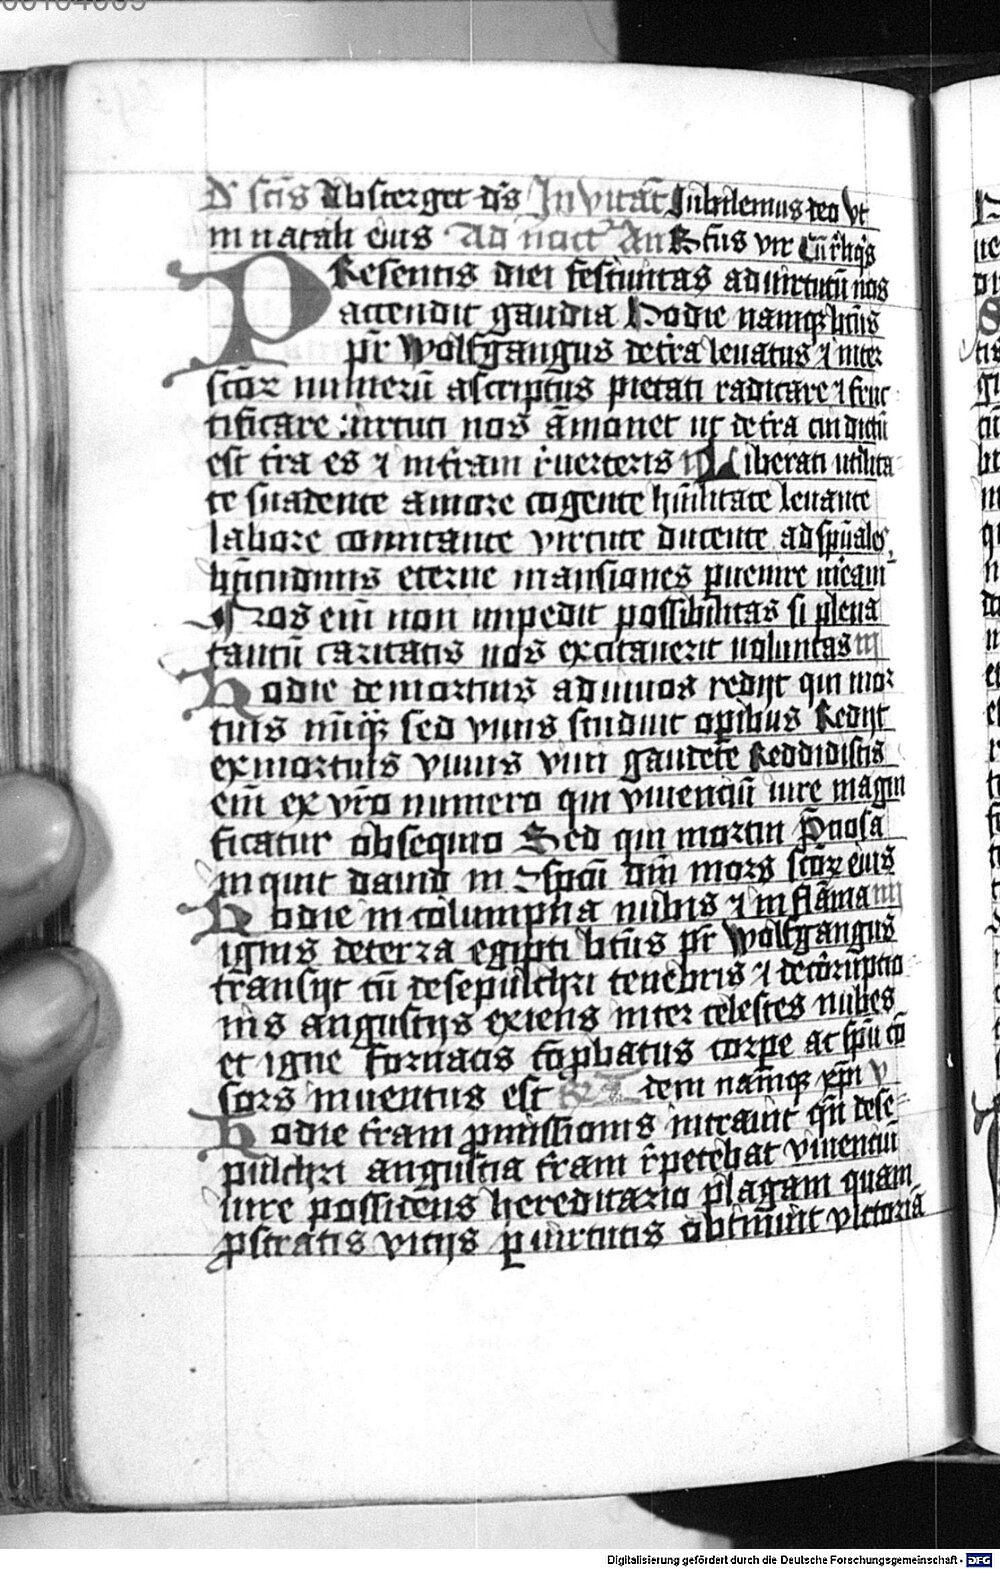 D' sctīs Absterget dn̄s Invitat̄ Jubilemus deo Vt
in natali eius Ad noct̄ An Stūs vir Cū r̄liq̄s
PResentis diei festiuitas ad uirtutū nos
accendit gaudia Hodie namq; btūs
pr̄ Wolfgangus de tr̄a leuatus ⁊ inter
sctōꝝ numerū ascriptus pietati radicare ⁊ fruc
tificare uirtuti nos am̄onet ut de tr̄a cui dictū
est tr̄a es ⁊ in tr̄am r̄uerteris ij Liberati utilita
te suadente amore cogente hūilitate leuante
labore comitante virtute ducente ad sp̄uales
btītudinis eterne mansiones puenire uiciam̄
Nos eim̄ non impedit possibilitas si plena
tantū caritatis nos excitauerit uoluntas iij
Hodie de mortuis ad uiuos redijt qui mor
tuis nūq; sed viuis studuit opibus Redijt
ex mortuis viuus viui gaudete Reddidistis
eim̄ ex vr̄o numero qui viuenciū iure magni
ficatur obsequio Sed qui mortui p̄ciosa
inquit dauid in ↄsp̄cū dn̄i mors sctōꝝ eius
Hodie in columpna nubis ⁊ in flāma iiij
ignis de terra egipti btūs pr̄ Wolfgangus
transijt cū de sepulchri tenebris ⁊ de corruptio
nis angustijs exiens inter celestes nubes
et igne fornacis cōprobatus corpe ac sp̄u cō
sors inuentus est R̄ Idem namq; xp̄m v
Hodie tr̄am ꝓmissionis intrauit qn̄ de se
pulchri angustia tr̄am r̄petebat viuenciū
iure possidens hereditario plagam quam
ꝓstratis vitijs ꝑ uirtutis obtinuit victoriā
Digitalisierung gefördert durch die Deutsche Forschungsgemeinschaft - DFG